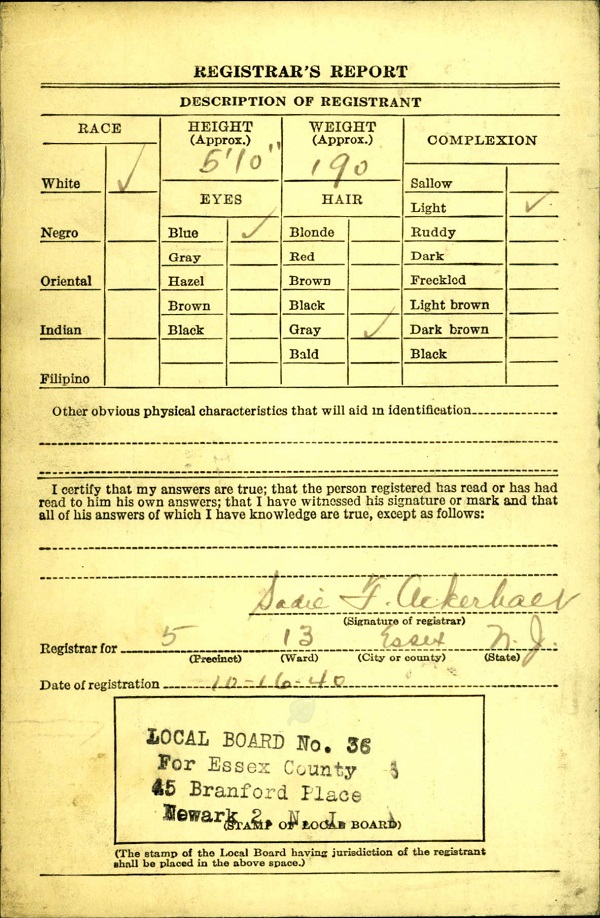 REGISTRAR'S REPORT
DESCRIPTION OF REGISTRANT
RACE
HEIGHT
(Approx.)
5'10"
WEIGHT
(Approx.)
190
COMPLEXION
White ✓
EYES
HAIR
Sallow
Light ✓
Negro
Blue ✓
Blonde
Ruddy
Gray
Red
Dark
Oriental
Hazel
Brown
Freckled
Brown
Black
Light brown
Indian
Black
Gray ✓
Dark brown
Bald
Black
Filipino
Other obvious physical characteristics that will aid in identification
I certify that my answers are true; that the person registered has read or has had
read to him his own answers; that I have witnessed his signature or mark and that
all of his answers of which I have knowledge are true, except as follows:
Sadie F.
(Signature of registrar)
Registrar for 5 13 Essex N.J.
(Precinct) (Ward) (City or county) (State)
Date of registration 10-16-40
LOCAL BOARD No. 36
For Essex County
45 Branford Place
Newark 2, N. J.
(STAMP OF LOCAL BOARD)
(The stamp of the Local Board having jurisdiction of the registrant
shall be placed in the above space.)